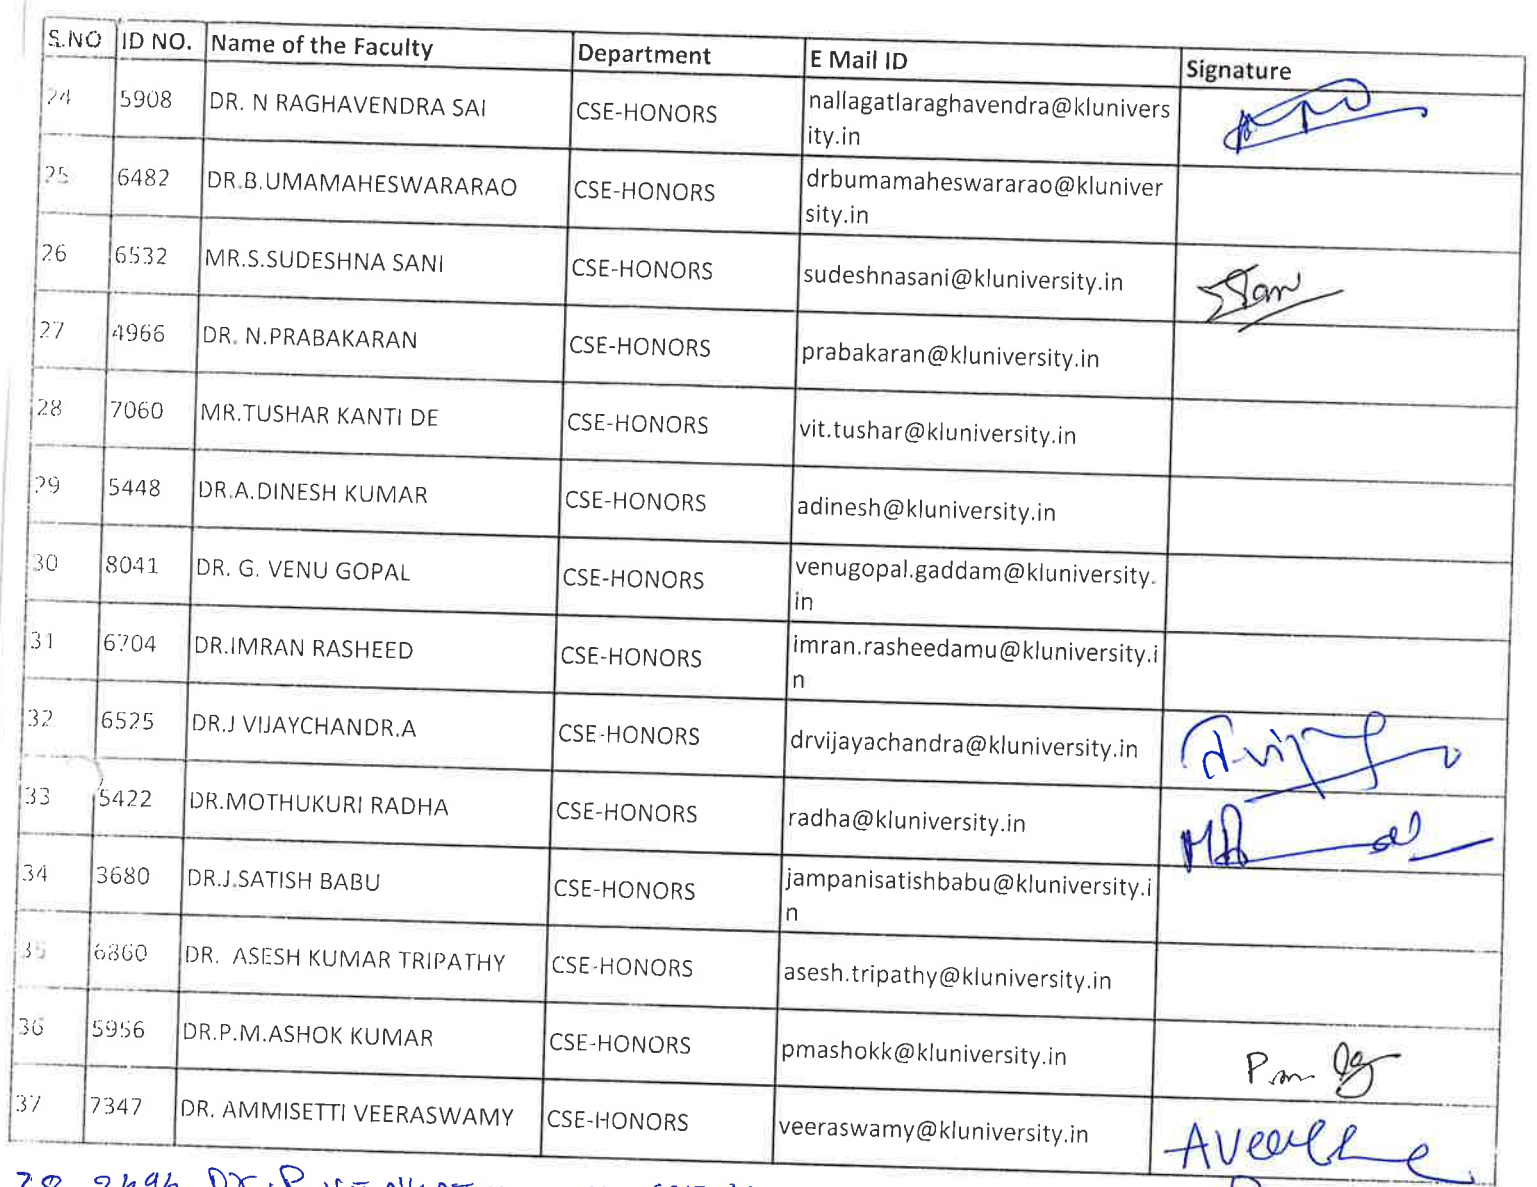 S.NO ID NO. Name of the Faculty Department E Mail ID Signature
24 5908 DR. N RAGHAVENDRA SAI CSE-HONORS nallagatlaraghavendra@klunivers
ity.in
25 6482 DR.B.UMAMAHESWARARAO CSE-HONORS drbumamaheswararao@kluniver
sity.in
26 6532 MR.S.SUDESHNA SANI CSE-HONORS sudeshnasani@kluniversity.in
27 4966 DR. N.PRABAKARAN CSE-HONORS prabakaran@kluniversity.in
28 7060 MR.TUSHAR KANTI DE CSE-HONORS vit.tushar@kluniversity.in
29 5448 DR.A.DINESH KUMAR CSE-HONORS adinesh@kluniversity.in
30 8041 DR. G. VENU GOPAL CSE-HONORS venugopal.gaddam@kluniversity.
in
31 6704 DR.IMRAN RASHEED CSE-HONORS imran.rasheedamu@kluniversity.i
n
32 6525 DR.J VIJAYCHANDR.A CSE-HONORS drvijayachandra@kluniversity.in
33 5422 DR.MOTHUKURI RADHA CSE-HONORS radha@kluniversity.in
34 3680 DR.J.SATISH BABU CSE-HONORS jampanisatishbabu@kluniversity.i
n
35 6860 DR. ASESH KUMAR TRIPATHY CSE-HONORS asesh.tripathy@kluniversity.in
36 5956 DR.P.M.ASHOK KUMAR CSE-HONORS pmashokk@kluniversity.in
37 7347 DR. AMMISETTI VEERASWAMY CSE-HONORS veeraswamy@kluniversity.in